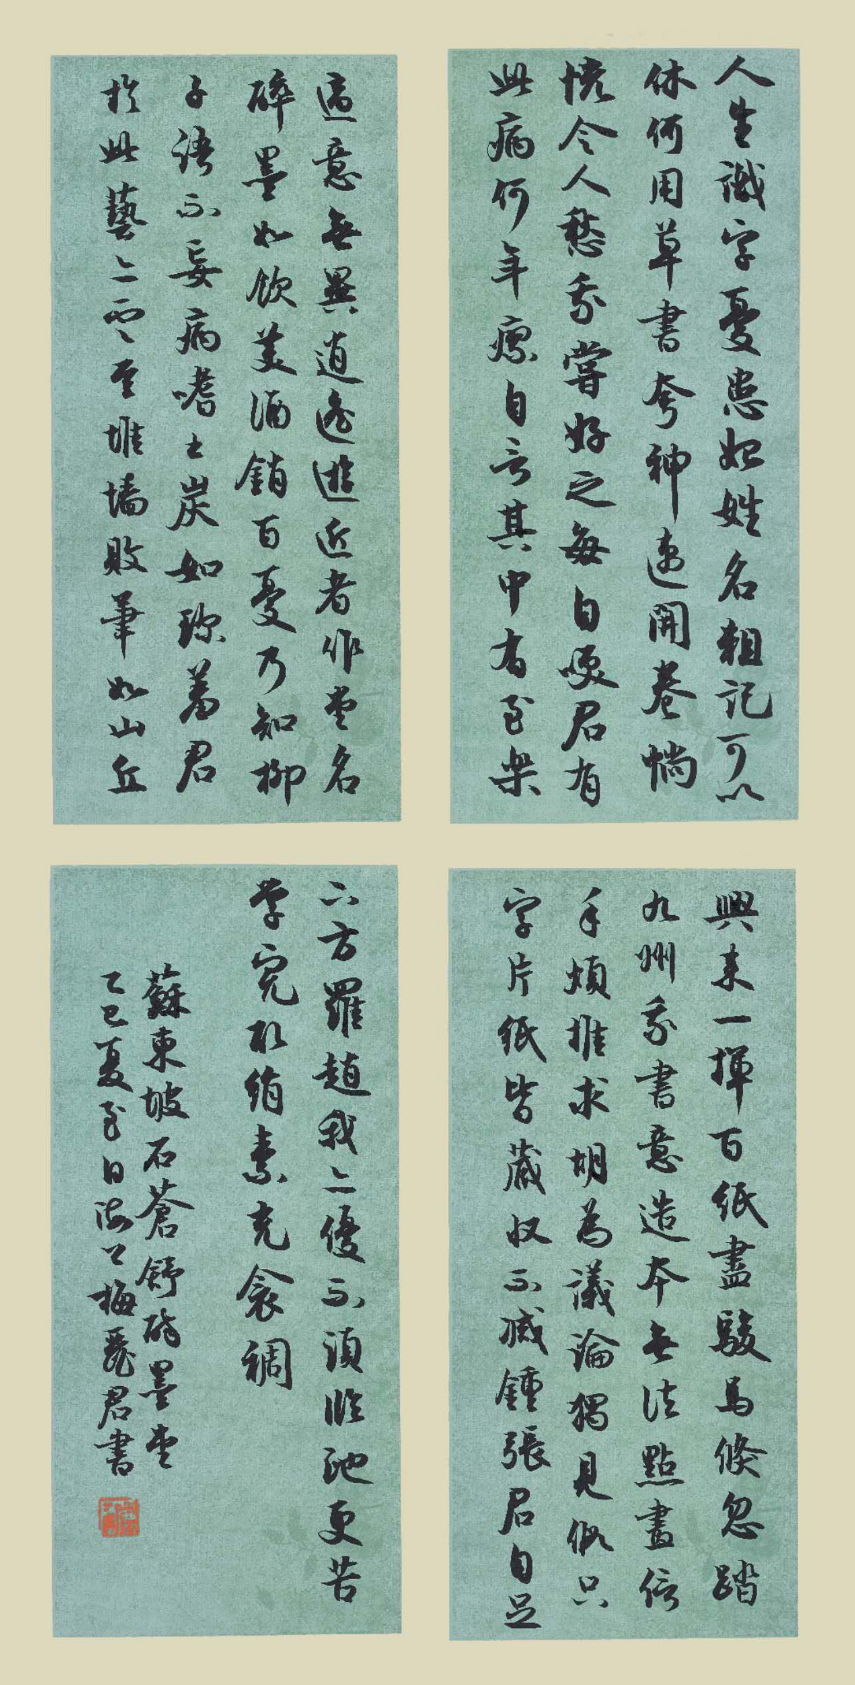 人生識字憂患始姓名粗記可以
休何用草書夸神速開卷惝
怳令人愁我嘗好之每自笑君有
此病何年瘳自言其中有至樂
適意無異逍遙遊近者作堂名
醉墨如飲美酒銷百憂乃知柳
子語不妄病嗜土炭如珍羞君
於此藝亦云至堆墻敗筆如山丘
興來一揮百紙盡駿馬倏忽踏
九州我書意造本無法點畫信
手煩推求胡為議論獨見假只
字片紙皆藏收不減鍾張君自足
下方羅趙我亦優不須臨池更苦
學完取絹素充衾裯
蘇東坡石蒼舒醉墨堂
乙巳夏至日海上梅君書